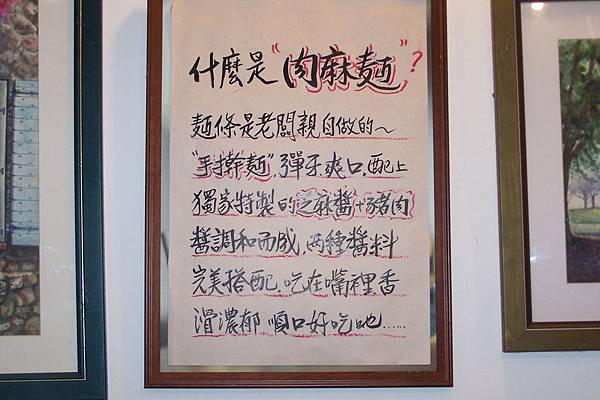 什麼是"肉麻麵"?
麵條是老闆親自做的～
"手打幹麵",彈牙爽口.配上
獨家特製的芝麻醬+豬肉
醬調和而成,两種醬料
完美搭配,吃在嘴裡香
滑濃郁 順口好吃吔……